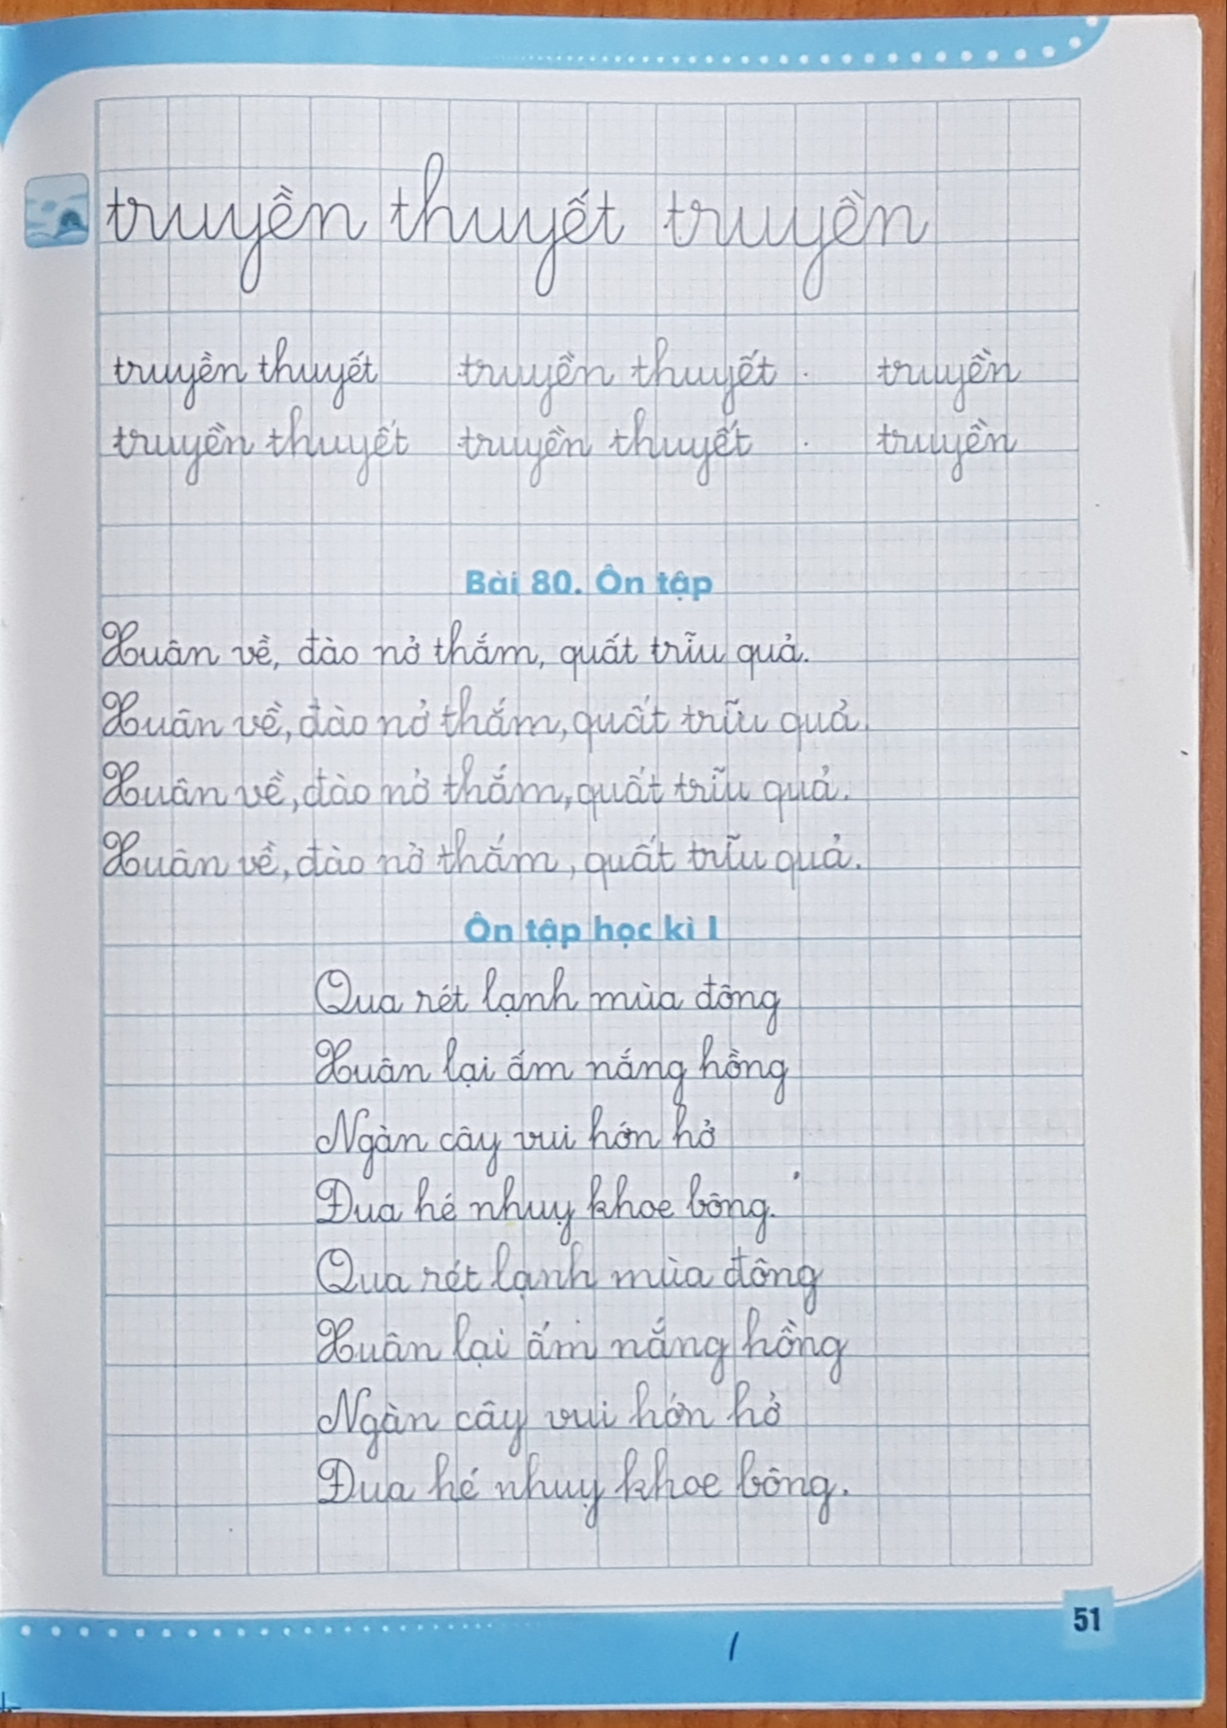 truyền thuyết truyền
truyền thuyết truyền thuyết . truyền
truyền thuyết truyền thuyết . truyền
Bài 80. Ôn tập
Xuân về, đào nở thắm, quất trĩu quả.
Xuân về, đào nở thắm, quất trĩu quả.
Xuân về, đào nở thắm, quất trĩu quả.
Xuân về, đào nở thắm, quất trĩu quả.
Ôn tập học kì I
Qua rét lạnh mùa đông
Xuân lại ấm nắng hồng
Ngàn cây vui hớn hở
Đua hé nhuỵ khoe bông.
Qua rét lạnh mùa đông
Xuân lại ấm nắng hồng
Ngàn cây vui hớn hở
Đua hé nhuỵ khoe bông.
51